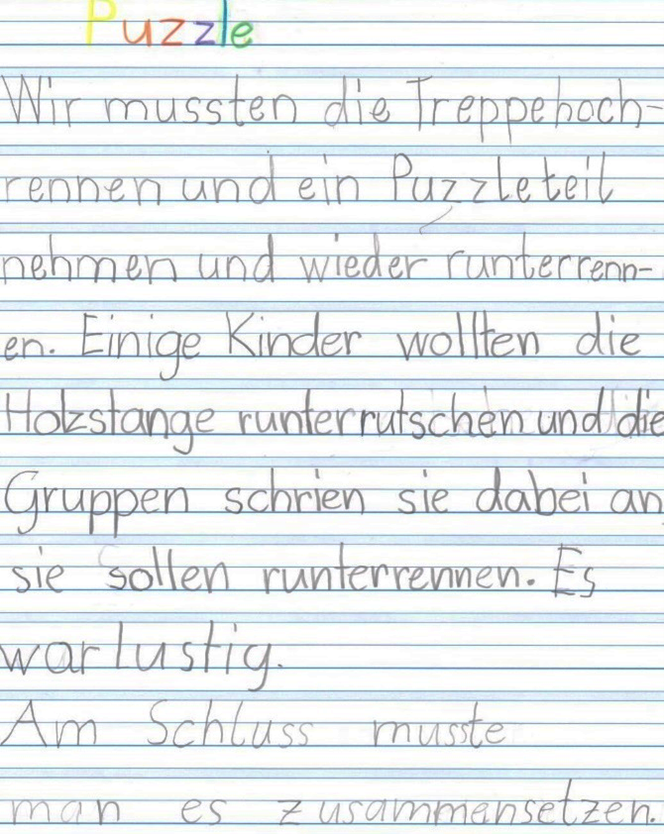 Puzzle
Wir mussten die Treppe hoch-
rennen und ein Puzzleteil
nehmen und wieder runterrenn-
en. Einige Kinder wollten die
Holzstange runterrutschen und die
Gruppen schrien sie dabei an
sie sollen runterrennen. Es
war lustig.
Am Schluss musste
man es zusammensetzen.